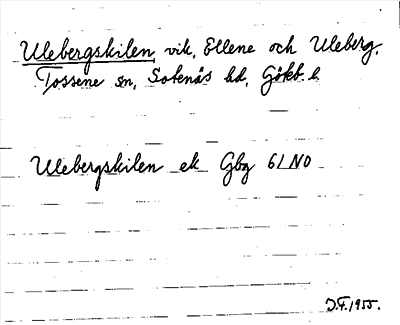 Ulebergskilen, vik, Ellene och Uleberg,
Tossene sn, Sotenäs hd, Göteb. l.
Ulebergskilen ek Gbg 61 NO
D.F. 1955.